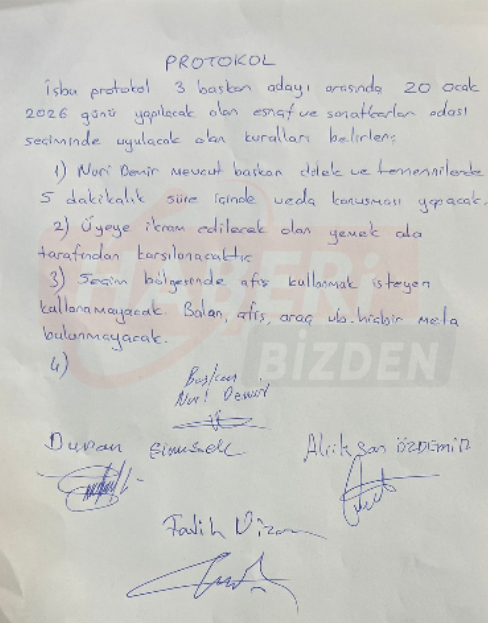 PROTOKOL
işbu protokol 3 başkan adayı arasında 20 Ocak
2026 günü yapılacak olan esnaf ve sanatkarlar odası
seçiminde uyulacak olan kuralları belirler;
1) Nuri Demir mevcut başkan dilek ve temennilerde
5 dakikalık süre içinde veda konuşması yapacak.
2) Üyeye ikram edilecek olan yemek oda
tarafından karşılanacaktır
3) Seçim bölgesinde afiş kullanmak isteyen
kullanamayacak. Balon, afiş, araç vb. hiçbir meta
bulunmayacak.
4)
HABERİ
BİZDEN
Başkan
Nuri Demir
Duran Şimşek
Alrıkşan ÖZDEMİR
Fatih